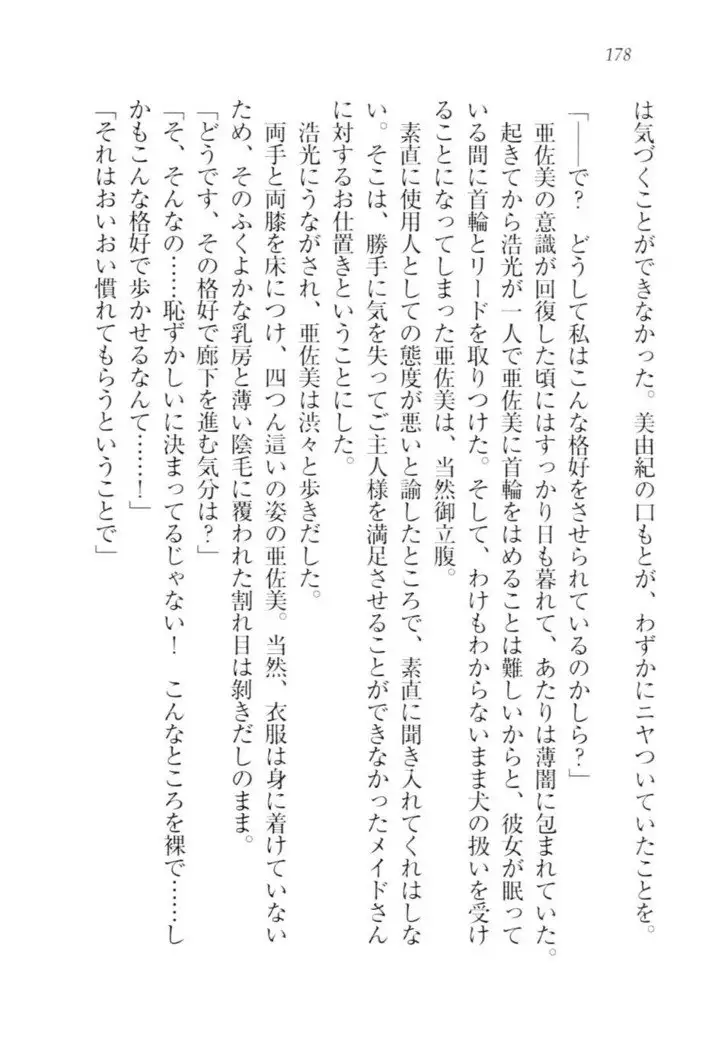 178
は気づくことができなかった。美由紀の口もとが、わずかにニヤついていたことを。
「――で？　どうして私はこんな格好をさせられているのかしら？」
亜佐美の意識が回復した頃にはすっかり日も暮れて、あたりは薄闇に包まれていた。
起きてから浩光が一人で亜佐美に首輪をはめることは難しいからと、彼女が眠って
いる間に首輪とリードを取りつけた。そして、わけもわからないまま犬の扱いを受け
ることになってしまった亜佐美は、当然御立腹。
素直に使用人としての態度が悪いと諭したところで、素直に聞き入れてくれはしな
い。そこは、勝手に気を失ってご主人様を満足させることができなかったメイドさん
に対するお仕置きということにした。
浩光にうながされ、亜佐美は渋々と歩きだした。
両手と両膝を床につけ、四つん這いの姿の亜佐美。当然、衣服は身に着けていない
ため、そのふくよかな乳房と薄い陰毛に覆われた割れ目は剝きだしのまま。
「どうです、その格好で廊下を進む気分は？」
「そ、そんなの……恥ずかしいに決まってるじゃない！　こんなところを裸で……し
かもこんな格好で歩かせるなんて……！」
「それはおいおい慣れてもらうということで」